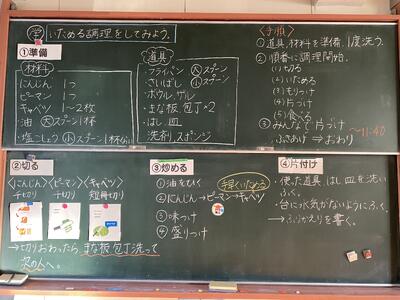 学 いためる調理をしてみよう。
①準備
材料
にんじん 1つ
ピーマン 1つ
キャベツ 1〜2枚
油 大スプーン1杯
・塩こしょう 小スプーン1杯
道具
・フライパン 大スプーン
・さいばし 小スプーン
・ボウル、ザル
・まな板 包丁×2
・はし 皿
・洗剤、スポンジ
〈手順〉
①道具、材料を準備。1度洗う。
②順番に調理開始。
(1)切る
(2)いためる
(3)もりつけ
(4)片づけ
(5)食べる
③みんなで片づけ 〜11:40
ふきあげ ⇒ おわり
②切る
〈にんじん〉
千切り
〈ピーマン〉
千切り
〈キャベツ〉
短冊切り
→切りおわったら まな板 包丁洗って
次の人へ。
③炒める
①油をひく 手早くいためる
②にんじん→ピーマン→キャベツ
③味つけ
④盛りつけ
④片付け
・使った道具、はし、皿を洗い
ふく。
・台に水気がないようにふく。
→ふりかえりを書く。